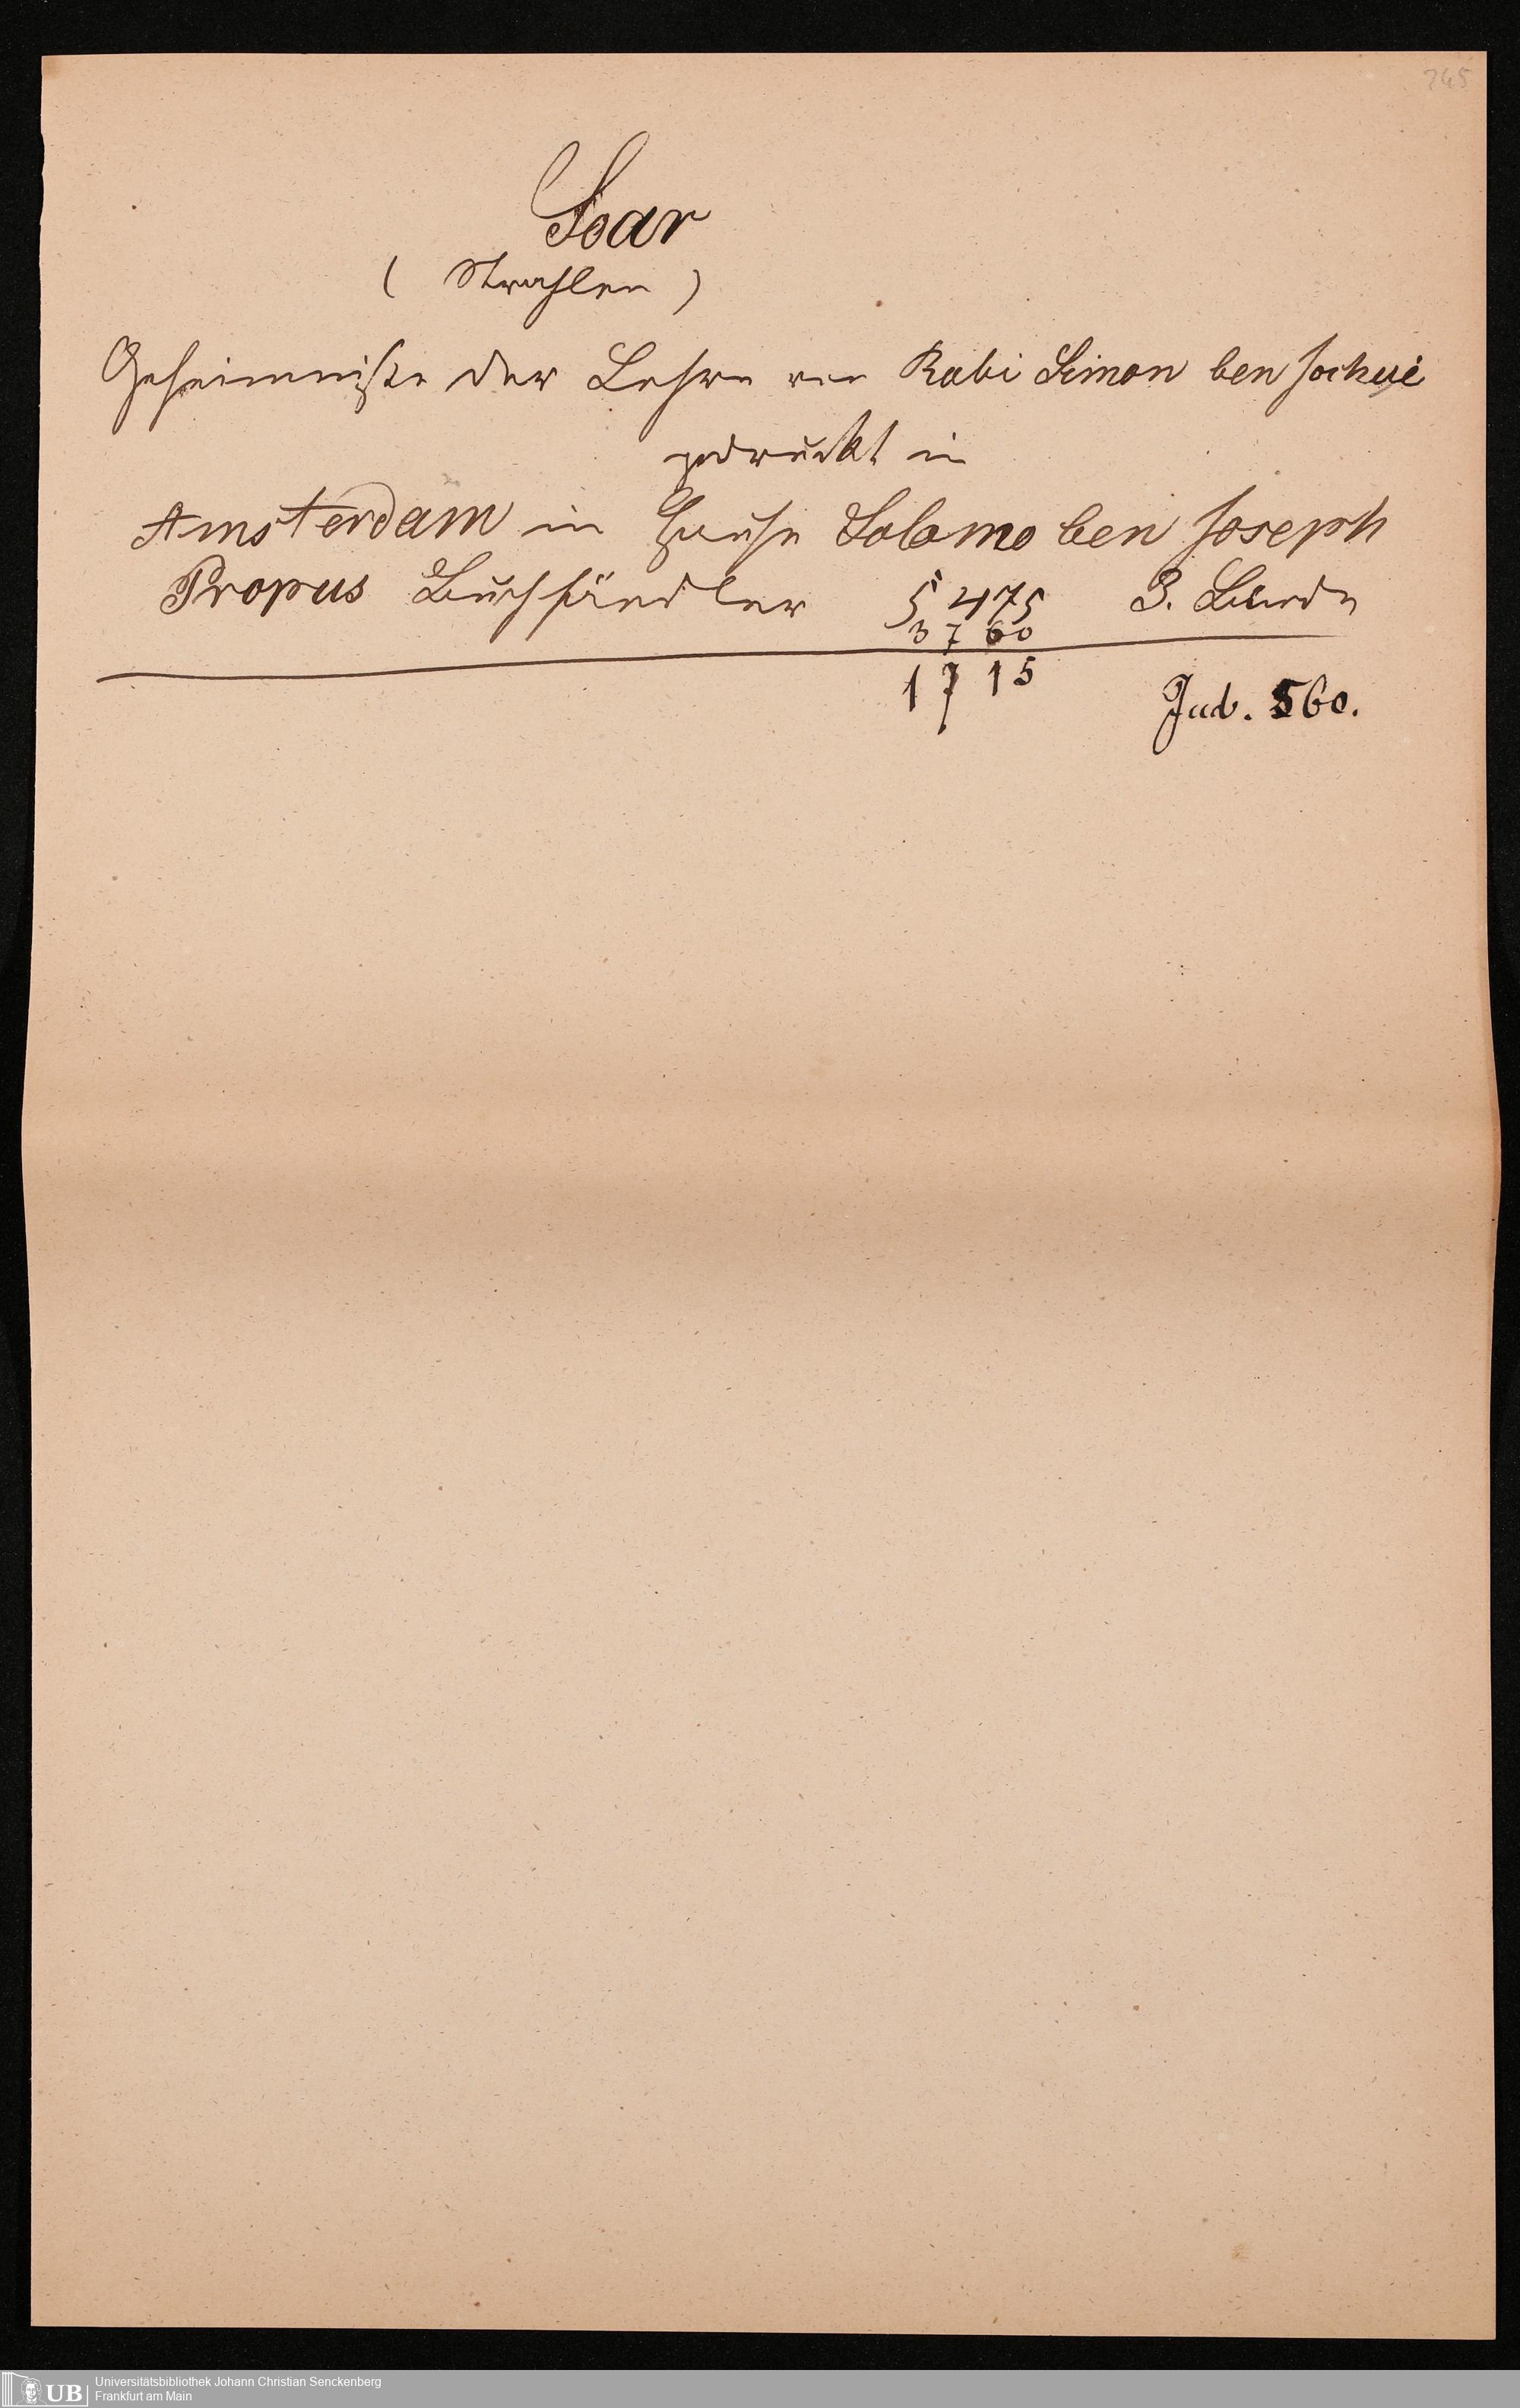 245
Soar
( Strahlen )
Geheimniße der Lehre von Rabi Simon ben Jochui
gedruckt in
Amsterdam in Hause Salomo ben Joseph
Propus Buchhändler 5475 3. Bände
3760
1715
Jud. 560.
UB Universitätsbibliothek Johann Christian Senckenberg
Frankfurt am Main